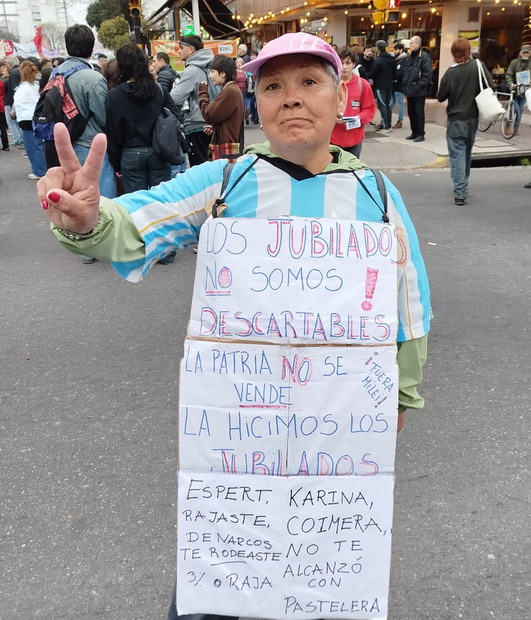 LOS JUBILADOS
NO SOMOS !
DESCARTABLES
LA PATRIA NO SE
VENDE
¡FUERA
MILEI!!
LA HICIMOS LOS
JUBILADOS
ESPERT,
RAJASTE,
DE NARCOS
TE RODEASTE
3% o RAJA
KARINA,
COIMERA,
NO TE
ALCANZÓ
CON
PASTELERA